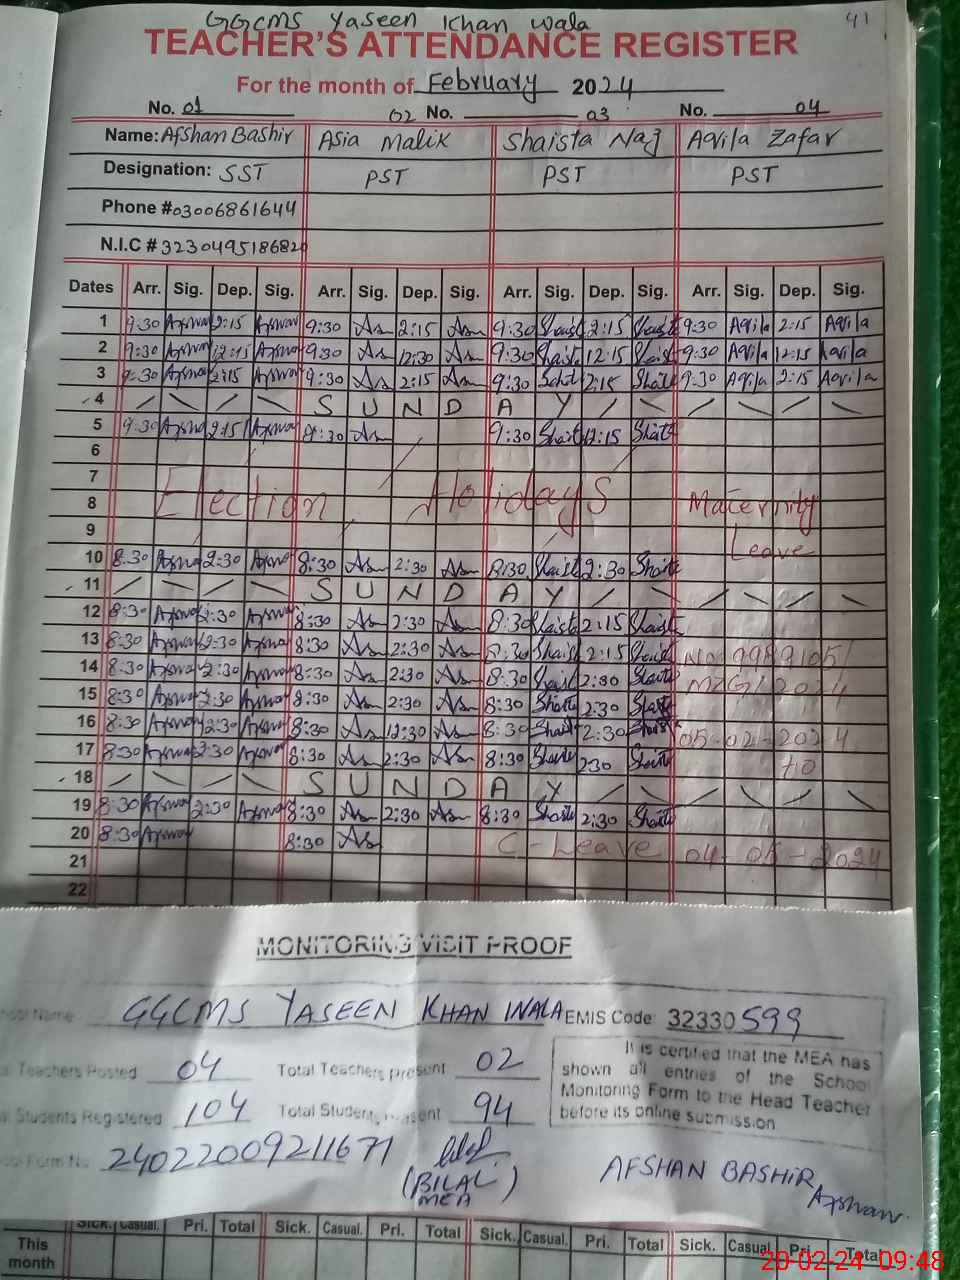 GGCMS Yaseen Khan wala
41
TEACHER'S ATTENDANCE REGISTER
For the month of February 2024
No. 01 02 No. 03 No. 04
Name: Afshan Bashir Asia Malik Shaista Naz Aqila Zafar
Designation: SST PST PST PST
Phone # 03006861644
N.I.C # 3230495186820
Dates Arr. Sig. Dep. Sig. Arr. Sig. Dep. Sig. Arr. Sig. Dep. Sig. Arr. Sig. Dep. Sig.
1 9:30 2:15 9:30 As 2:15 As 9:30 Shaist 2:15 Shaist 9:30 Aqila 2:15 Aqila
2 9:30 12:15 9:30 As 12:30 As 9:30 Shaista 12:15 Shaist 9:30 Aqila 12:15 Aqila
3 9:30 2:15 9:30 As 2:15 As 9:30 2:15 9:30 Aqila 2:15 Aqila
4 S U N D A Y
5 9:30 2:15 9:30 As 9:30 Shaist 12:15
6
7
8 Election Holidays Maternity
9 Leave
10 8:30 2:30 8:30 As 2:30 As 8:30 Shaist 2:30
11 S U N D A Y
12 8:30 2:30 8:30 As 2:30 As 8:30 Shaista 2:15 Shaist
13 8:30 2:30 8:30 As 2:30 As 8:30 Shaist 2:15 Shaist No 9989105/
14 8:30 2:30 8:30 As 2:30 As 8:30 Shaist 2:30 MZG/2024
15 8:30 2:30 8:30 As 2:30 As 8:30 2:30
16 8:30 2:30 8:30 As 12:30 As 8:30 2:30 05-02-2024
17 8:30 2:30 8:30 As 2:30 As 8:30 2:30 to
18 S U N D A Y
19 8:30 2:30 8:30 As 2:30 As 8:30 2:30
20 8:30 8:30 As C-Leave 04-05-2024
21
22
MONITORING VISIT PROOF
School Name GGCMS YASEEN KHAN WALA EMIS Code: 32330599
Teachers Posted 04 Total Teachers present 02
Students Registered 104 Total Students Present 94
It is certified that the MEA has
shown all entries of the School
Monitoring Form to the Head Teacher
before its online submission
Form No 24022009211671
(BILAL)
MEA
AFSHAN BASHIR
Afshan
This month Sick. Casual. Pri. Total Sick. Casual. Pri. Total Sick. Casual. Pri. Total Sick. Casual Pri. Total
20-02-24 09:48